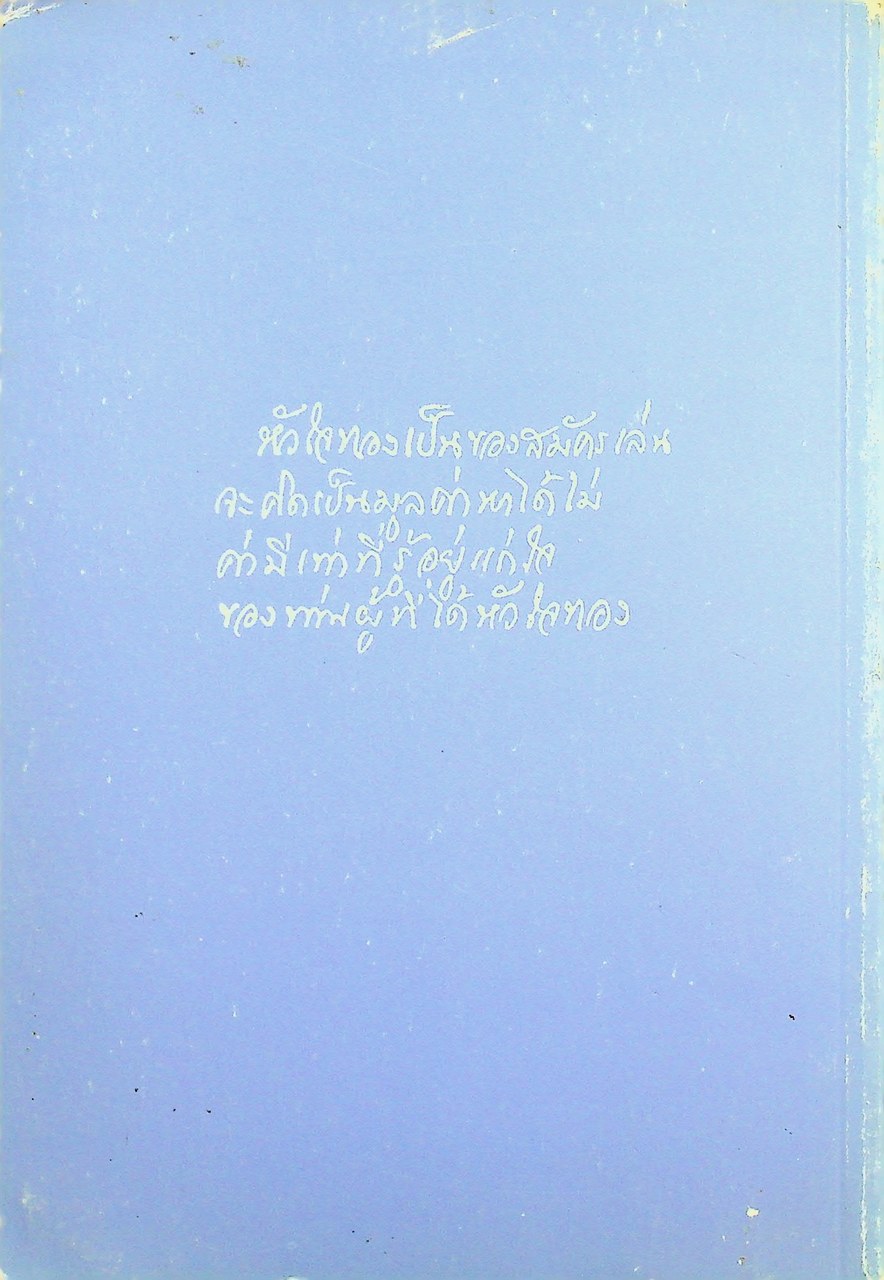 หัวใจทองเป็นของสมัครเล่น
จะคิดเป็นมูลค่าหาได้ไม่
ค่ามีเท่าที่รู้อยู่แก่ใจ
ของท่านผู้ที่ได้หัวใจทอง